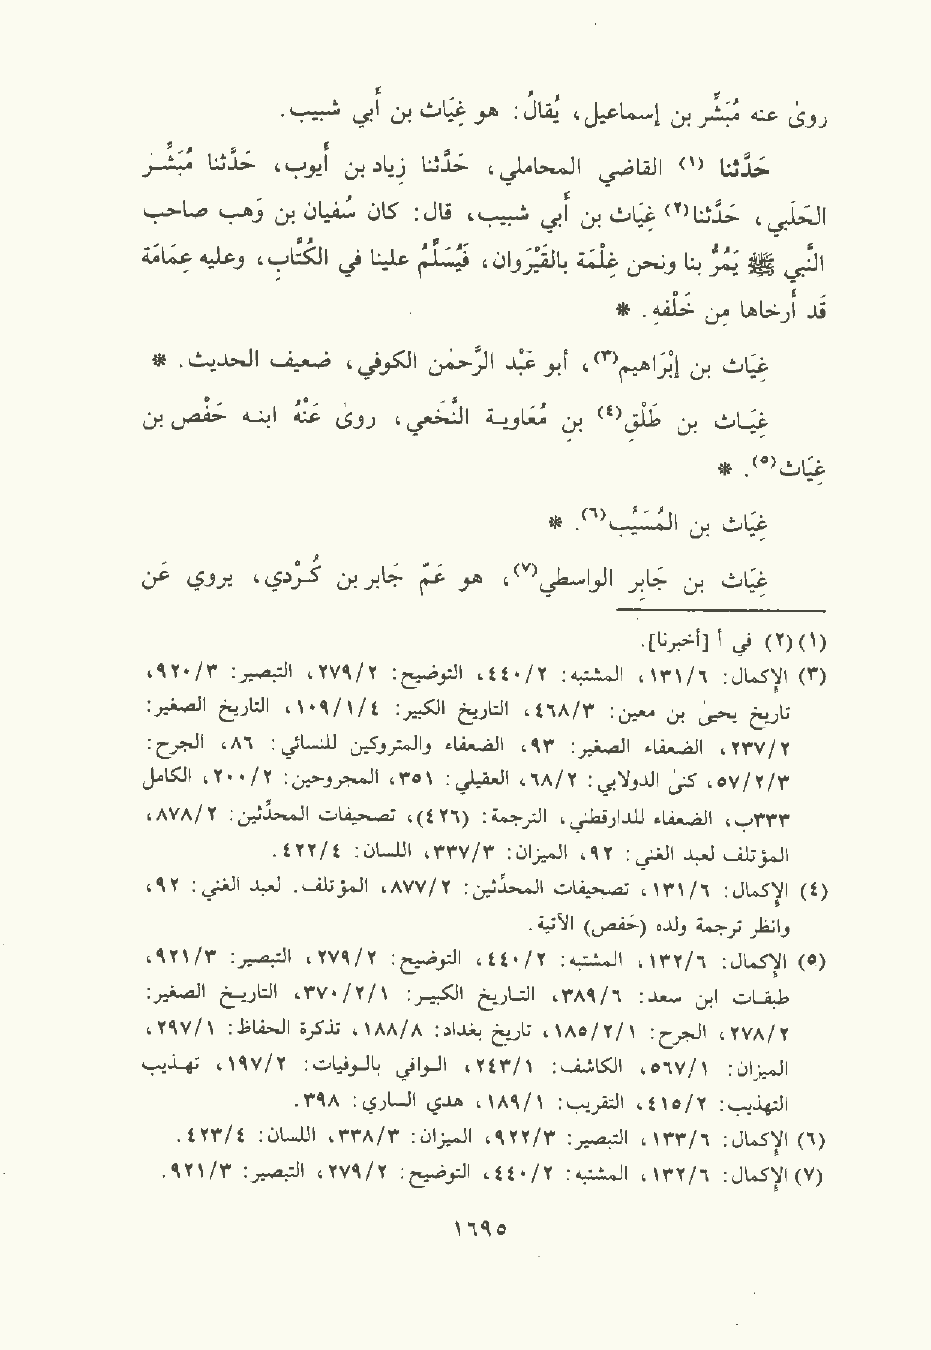 روىٰ عنه مُبَشِّر بن إسماعيل، يُقالُ: هو غِيَاث بن أَبي شبيب.
حَدَّثنا (١) القاضي المحاملي، حَدَّثنا زِياد بن أيوب، حَدَّثنا مُبَشِّر
الحَلَبي، حَدَّثنا(٢) غِيَاث بن أبي شبيب، قال: كان سُفيان بن وَهب صاحب
النَّبي ﷺ يَمُرُّ بنا ونحن غِلْمَة بالقَيْرَاون، فَيُسَلِّمُ علينا في الكُتَّاب، وعليه عِمَامَة
قَد أرخاها مِن خَلْفهِ. *
غِيَاث بن إبْرَاهيم(٣)، أبو عَبْد الرَّحمٰن الكوفي، ضعيف الحديث. *
غِيَاث بن طَلْقِ(٤) بنِ مُعَاوية النَّخَعي، روىٰ عَنْهُ ابنه حَفْص بن
غِيَاث(٥). *
غِيَاث بن المُسَيَّب(٦). *
غِيَاث بن جَابِر الواسطي(٧)، هو عَمّ جَابر بن كُرْدي، يروي عَن
(١)(٢) في أ [أخبرنا].
(٣) الإكمال: ٦/١٣١، المشتبه: ٢/٤٤٠، التوضيح: ٢/٢٧٩، التبصير: ٣/٩٢٠،
تاريخ يحيىٰ بن معين: ٣/٤٦٨، التاريخ الكبير: ٤/١/١٠٩، التاريخ الصغير:
٢/٢٣٧، الضعفاء الصغير: ٩٣، الضعفاء والمتروكين للنسائي: ٨٦، الجرح:
٣/٢/٥٧، كنىٰ الدولابي: ٢/٦٨، العقيلي: ٣٥١، المجروحين: ٢/٢٠٠، الكامل
٣٣٣ب، الضعفاء للدارقطني، الترجمة: (٤٢٦)، تصحيفات المحدّثين: ٢/٨٧٨،
المؤتلف لعبد الغني: ٩٢، الميزان: ٣/٣٣٧، اللسان: ٤/٤٢٢.
(٤) الإكمال: ٦/١٣١، تصحيفات المحدّثين: ٢/٨٧٧، المؤتلف. لعبد الغني: ٩٢،
وانظر ترجمة ولده (حَفص) الآتية.
(٥) الإكمال: ٦/١٣٢، المشتبه: ٢/٤٤٠، التوضيح: ٢/٢٧٩، التبصير: ٣/٩٢١،
طبقات ابن سعد: ٦/٣٨٩، التاريخ الكبير: ١/٢/٣٧٠، التاريخ الصغير:
٢/٢٧٨، الجرح: ١/٢/١٨٥، تاريخ بغداد: ٨/١٨٨، تذكرة الحفاظ: ١/٢٩٧،
الميزان: ١/٥٦٧، الكاشف: ١/٢٤٣، الوافي بالوفيات: ٢/١٩٧، تهذيب
التهذيب: ٢/٤١٥، التقريب: ١/١٨٩، هدي الساري: ٣٩٨.
(٦) الإكمال: ٦/١٣٣، التبصير: ٣/٩٢٢، الميزان: ٣/٣٣٨، اللسان: ٤/٤٢٣.
(٧) الإكمال: ٦/١٣٢، المشتبه: ٢/٤٤٠، التوضيح: ٢/٢٧٩، التبصير: ٣/٩٢١.
١٦٩٥